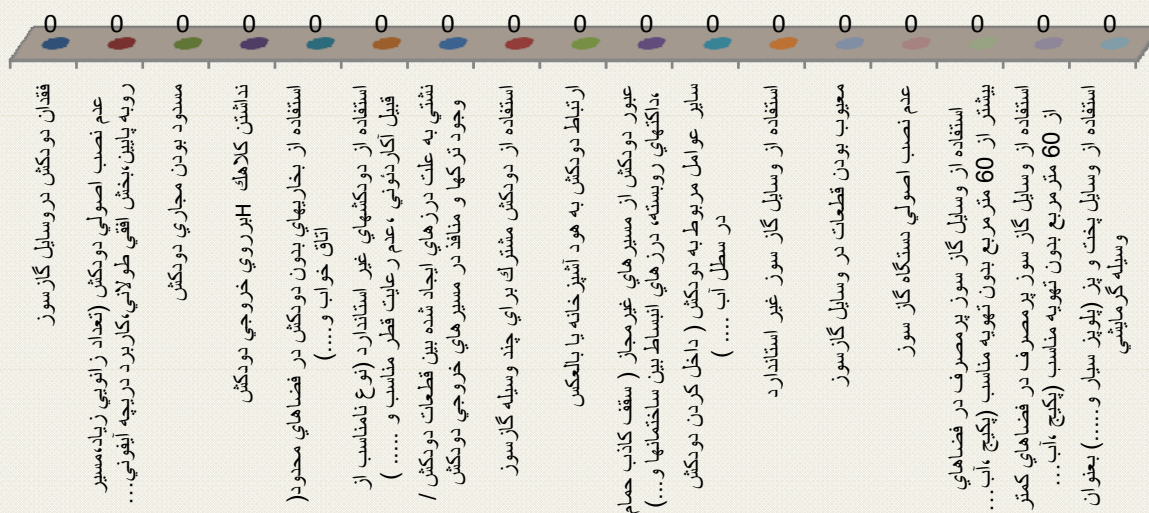 0 0 0 0 0 0 0 0 0 0 0 0 0 0 0 0 0
فقدان دودكش دروسايل گازسوز
عدم نصب اصولي دودكش (تعداد زانويي زياد،مسير
روبه پايين،بخش افقي طولاني،كاربرد دريچه آيفوني...
مسدود بودن مجاري دودكش
نداشتن كلاهك Hبرروي خروجي دودكش
استفاده از بخاريهاي بدون دودكش در فضاهاي محدود(
اتاق خواب و....)
استفاده از دودكشهاي غير استاندارد (نوع نامناسب از
قبيل آكاردئوني ،عدم رعايت قطر مناسب و ..... )
نشتي به علت درزهاي ايجاد شده بين قطعات دودكش /
وجود تركها و منافذ در مسيرهاي خروجي دودكش
استفاده از دودكش مشترك براي چند وسيله گازسوز
ارتباط دودكش به هود آشپزخانه يا بالعكس
عبور دودكش از مسيرهاي غيرمجاز ( سقف كاذب حمام
،داكتهاي روبسته، درزهاي انبساط بين ساختمانها و...)
ساير عوامل مربوط به دودكش ( داخل كردن دودكش
در سطل آب .... )
استفاده از وسايل گاز سوز غير استاندارد
معيوب بودن قطعات در وسايل گازسوز
عدم نصب اصولي دستگاه گاز سوز
استفاده از وسايل گاز سوز پرمصرف در فضاهاي
بيشتر از 60 مترمربع بدون تهويه مناسب (پكيج ،آب...
استفاده از وسايل گاز سوز پرمصرف در فضاهاي كمتر
از 60 مترمربع بدون تهويه مناسب (پكيج ،آب...
استفاده از وسايل پخت و پز (پلوپز سيار و.....) بعنوان
وسيله گرمايشي